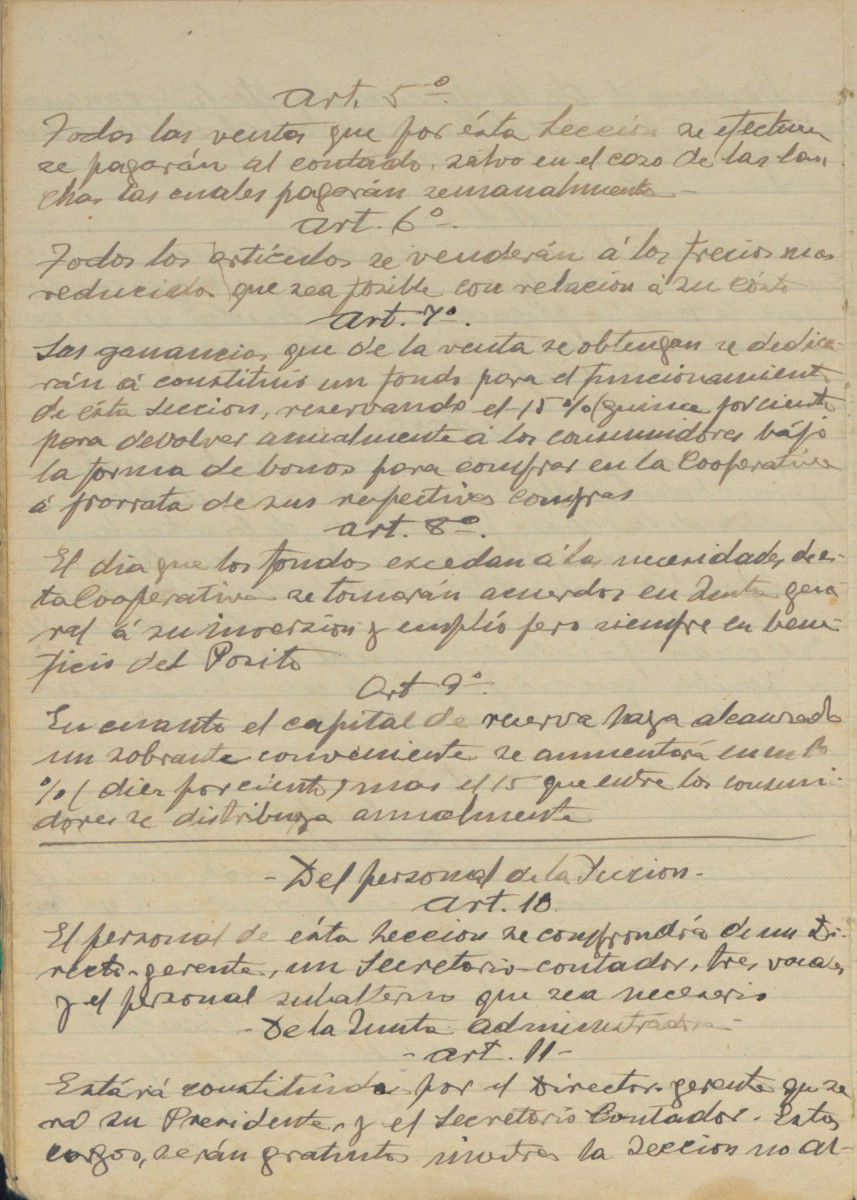 Art. 5º.
Todas las ventas que por ésta Seccion se efectuen
se pagarán al contado, salvo en el caso de las lan-
chas las cuales pagarán semanalmente -
Art. 6º.
Todos los artículos se venderán á los precios mas
reducidos que sea posible con relacion á su cósto
Art. 7º.
Las ganancias que de la venta se obtengan se dedica-
rán á constituir un fondo para el funcionamiento
de ésta Seccion, reservando el 15 % (quince por ciento
para devolver anualmente á los consumidores bájo
la forma de bonos para comprar en la Cooperativa
á prorrata de sus respectivas compras
Art. 8º.
El dia que los fondos excedan á las necesidades de es-
ta Cooperativa se tomarán acuerdos en Junta gene-
ral á su inversion y empléo pero siempre en bene-
ficio del Posito
Art 9º.
En cuanto el capital de reserva haya alcanzado
un sobrante conveniente se aumentará en un 10
% (diez por ciento) mas el 15 que entre los consumi-
dores se distribuya anualmente
- Del personal de la Seccion -
Art. 10
El personal de ésta Seccion se compondrá de un Di-
recto-gerente, un Secretario-contador, tres vocales
y el personal subalterno que sea necesario
- De la Junta administradora -
- Art. 11 -
Estárá constituida por el Director-gerente que se
rá su Presidente, y el Secretario Contador. Estos
cargos, serán gratuitos mientras la Seccion no al-